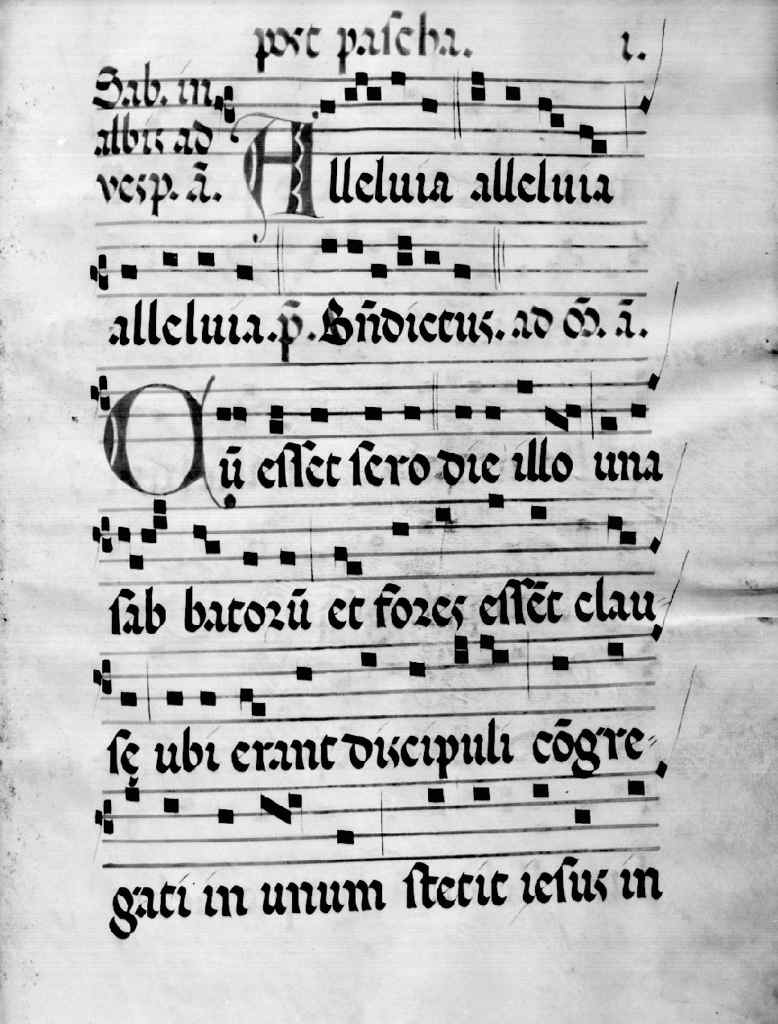 post pascha. 1.
Sab. in
albis ad
vesp. ã. Alleluia alleluia
alleluia. p̃. Bñdictus. ad M̃. ã.
Cũ esset sero die illo una
sab batorũ et fores essẽt clau
sę ubi erant discipuli cõgre-
gati in unum stetit iesus in